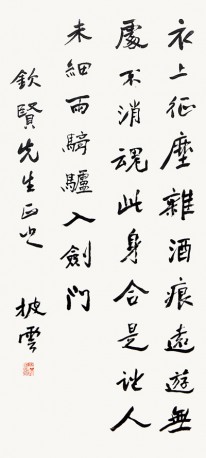 衣上征塵雜酒痕遠遊無
處不消魂此身合是詩人
未細雨騎驢入劍門
欽賢先生正之
披雲